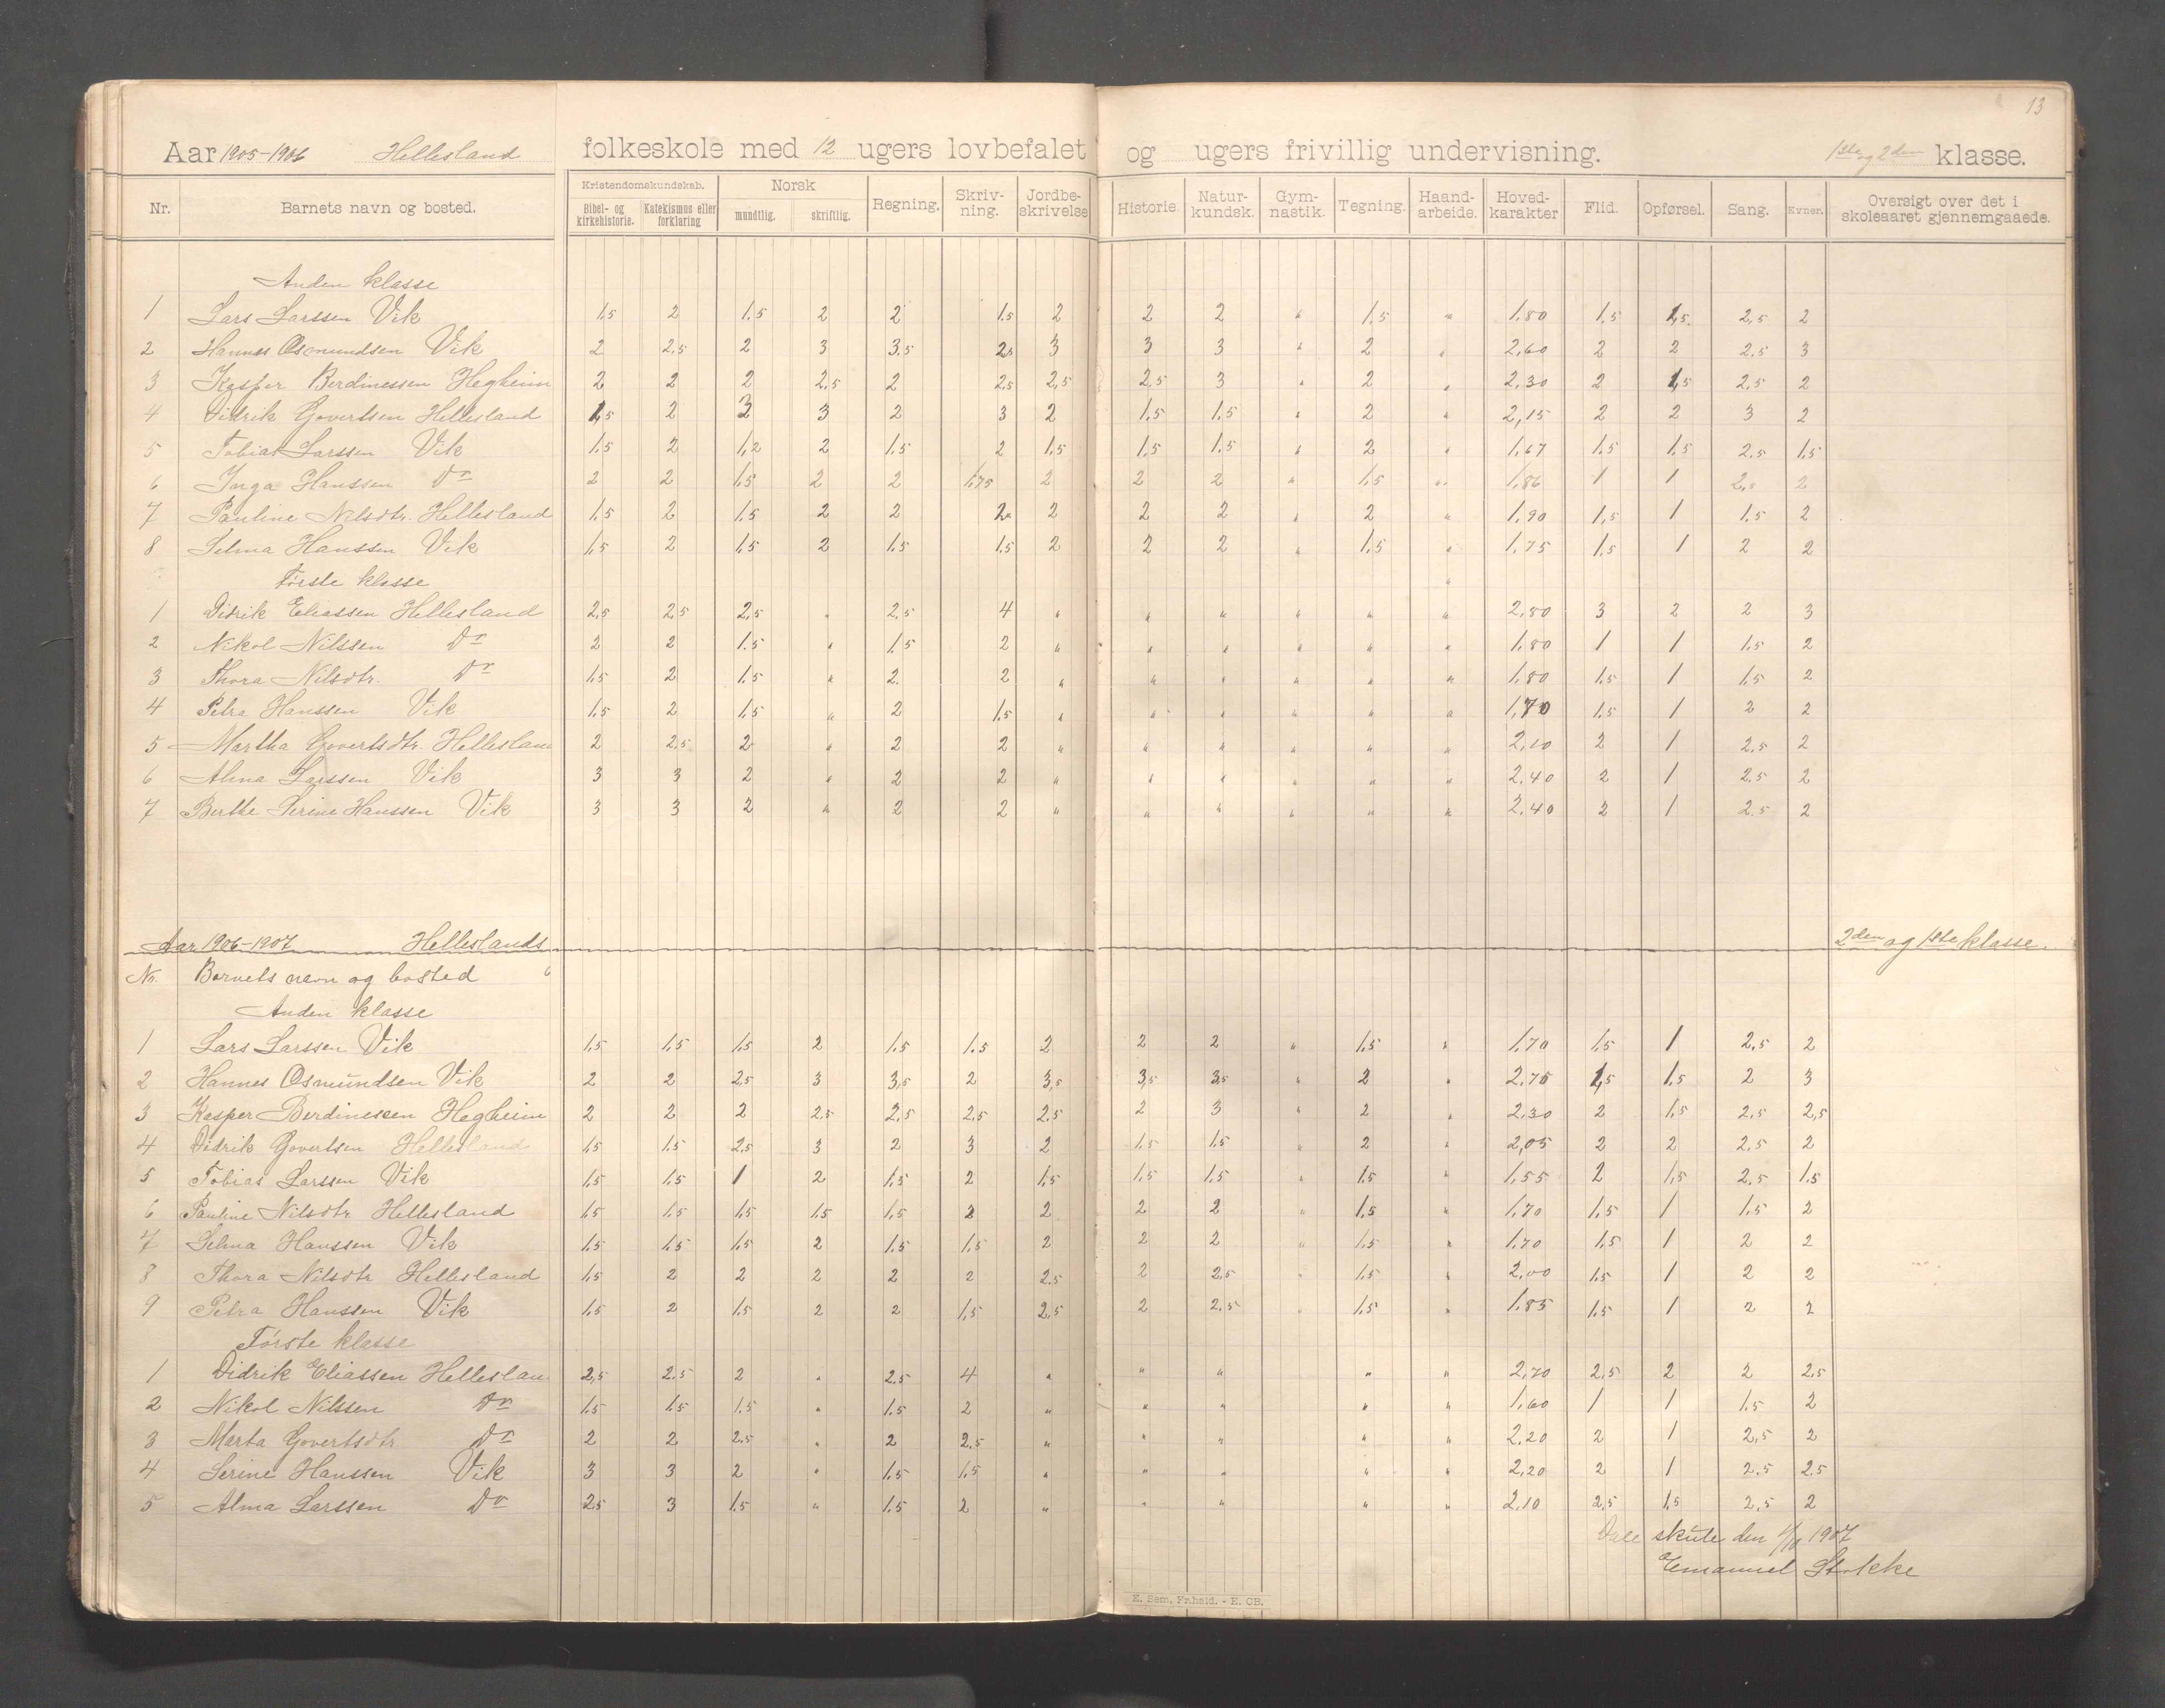 13
Aar 1905-1906 Hellesland folkeskole med 12 ugers lovbefalet og ugers frivillig undervisning. 1ste og 2den klasse.
Nr. Barnets navn og bosted. Kristendomskundskab. Bibel- og kirkehistorie. Katekismus eller forklaring Norsk mundtlig. skriftlig. Regning. Skriv-ning. Jordbe-skrivelse Historie. Natur-kundsk. Gym-nastik. Tegning. Haand-arbeide. Hoved-karakter Flid. Opførsel. Sang. Evner. Oversigt over det i skoleaaret gjennemgaaede.
Anden klasse
1 Lars Larssen Vik 1,5 2 1,5 2 2 1,5 2 2 2 " 1,5 " 1,80 1,5 1,5 2,5 2
2 Hannes Osmundsen Vik 2 2,5 2 3 3,5 2 3 3 3 " 2 " 2,60 2 2 2,5 3
3 Kasper Berdinessen Hegheim 2 2 2 2,5 2 2,5 2,5 2,5 3 " 2 " 2,30 2 1,5 2,5 2
4 Didrik Govertsen Hellesland 1,5 2 3 2 3 2 1,5 1,5 " 2 " 2,15 2 2 3 2
5 Tobias Larssen Vik 1,5 2 1,2 2 1,5 2 1,5 1,5 1,5 " 2 " 1,67 1,5 1,5 2,5 1,5
6 Inga Hanssen Do 2 2 1,5 2 2 1,75 2 2 2 " 1,5 " 1,86 1 1 2,0 2
7 Pauline Nilsdtr. Hellesland 1,5 2 1,5 2 2 2 2 2 2 " 2 " 1,90 1,5 1 1,5 2
8 Selma Hanssen Vik 1,5 2 1,5 2 1,5 1,5 2 2 2 " 1,5 " 1,75 1,5 1 2 2
Første klasse "
1 Didrik Eliassen Hellesland 2,5 2,5 2,5 " 2,5 4 " " " " " " 2,80 3 2 2 3
2 Nikol Nilssen Do 2 2 1,5 " 1,5 2 " " " " " " 1,80 1 1 1,5 2
3 Thora Nilsdtr. Do 1,5 2 1,5 " 2 2 " " " " " " 1,80 1,5 1 1,5 2
4 Petra Hanssen Vik 1,5 2 1,5 " 2 1,5 " " " " " " 1,70 1,5 1 2 2
5 Martha Govertsdtr. Hellesland 2 2,5 2 " 2 2 " " " " " " 2,10 2 1 2,5 2
6 Alma Larssen Vik 3 3 2 " 2 2 " " " " " " 2,40 2 1 2,5 2
7 Berthe Serine Hanssen Vik 3 3 2 " 2 2 " " " " " " 2,40 2 1 2,5 2
Aar 1906-1907 Helleslands 2den og 1ste klasse.
Nr. Barnets navn og bosted
Anden klasse
1 Lars Larssen Vik 1,5 1,5 1,5 2 1,5 1,5 2 2 2 " 1,5 " 1,70 1,5 1 2,5 2
2 Hannes Osmundsen Vik 2 2 2,5 3 3,5 2 3,5 3,5 3,5 " 2 " 2,75 1,5 1,5 2 3
3 Kasper Berdinessen Hegheim 2 2 2 2,5 2,5 2,5 2,5 2 3 " 2 " 2,30 2 1,5 2,5 2,5
4 Didrik Govertsen Hellesland 1,5 1,5 2,5 3 2 3 2 1,5 1,5 " 2 " 2,05 2 2 2,5 2
5 Tobias Larssen Vik 1,5 1,5 1 2 1,5 2 1,5 1,5 1,5 " 1,5 " 1,55 2 1,5 2,5 1,5
6 Pauline Nilsdtr Hellesland 1,5 1,5 1,5 1,5 1,5 2 2 2 2 " 1,5 " 1,70 1,5 1 1,5 2
7 Selma Hanssen Vik 1,5 1,5 1,5 2 1,5 1,5 2 2 2 " 1,5 " 1,70 1,5 1 2 2
8 Thora Nilsdtr Hellesland 1,5 2 2 2 2 2 2,5 2 2,5 " 1,5 " 2,00 1,5 1 2 2
9 Petra Hanssen Vik 1,5 2 1,5 2 2 1,5 2,5 2 2,5 " 1,5 " 1,85 1,5 1 2 2
Første klasse
1 Didrik Eliassen Hellesland 2,5 2,5 2 " 2,5 4 " " " " " 2,70 2,5 2 2 2,5
2 Nikol Nilssen Do 1,5 1,5 1,5 " 1,5 2 " " " " " 1,60 1 1 1,5 2
3 Marta Govertsdtr Do 2 2 2,5 " 2 2,5 " " " " " 2,20 2 1 2,5 2
4 Serine Hanssen Vik 3 3 2 " 1,5 1,5 " " " " " 2,20 2 1 2,5 2,5
5 Alma Larssen Do 2,5 3 1,5 " 1,5 2 " " " " " 2,10 2,5 1,5 2,5 2
skute den 1907
Emanuel Stokke
E. Sem, Fr.hald. - E. CB.